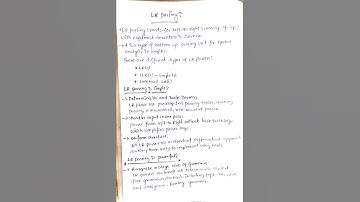 LR parsing?
• LR parsing stands for left to right scanning of i/p,
with rightmost derivation in reverse.
• A type of bottom-up parsing used for syntax
analysis in compiler.
There are different types of LR parser:
* LR(0)
* SLR(1) - Simple LR
* LALR(1)
LR parsing is simple?
• Deterministic and Table-Driven:
LR parser use precomputed parsing tables, making
parsing a mechanical, rule based process.
• Handles input in one pass:
parses from left to right without back tracking,
which simplifies parser logic.
• Uniform structure:
All LR parser use a shift-reduce approach
making them easy to implement using tools.
LR parsing is powerful?
• Recognize a large class of Grammars:
LR parsers can handle all deterministic context
free grammars, including left-
and ambiguous grammars.